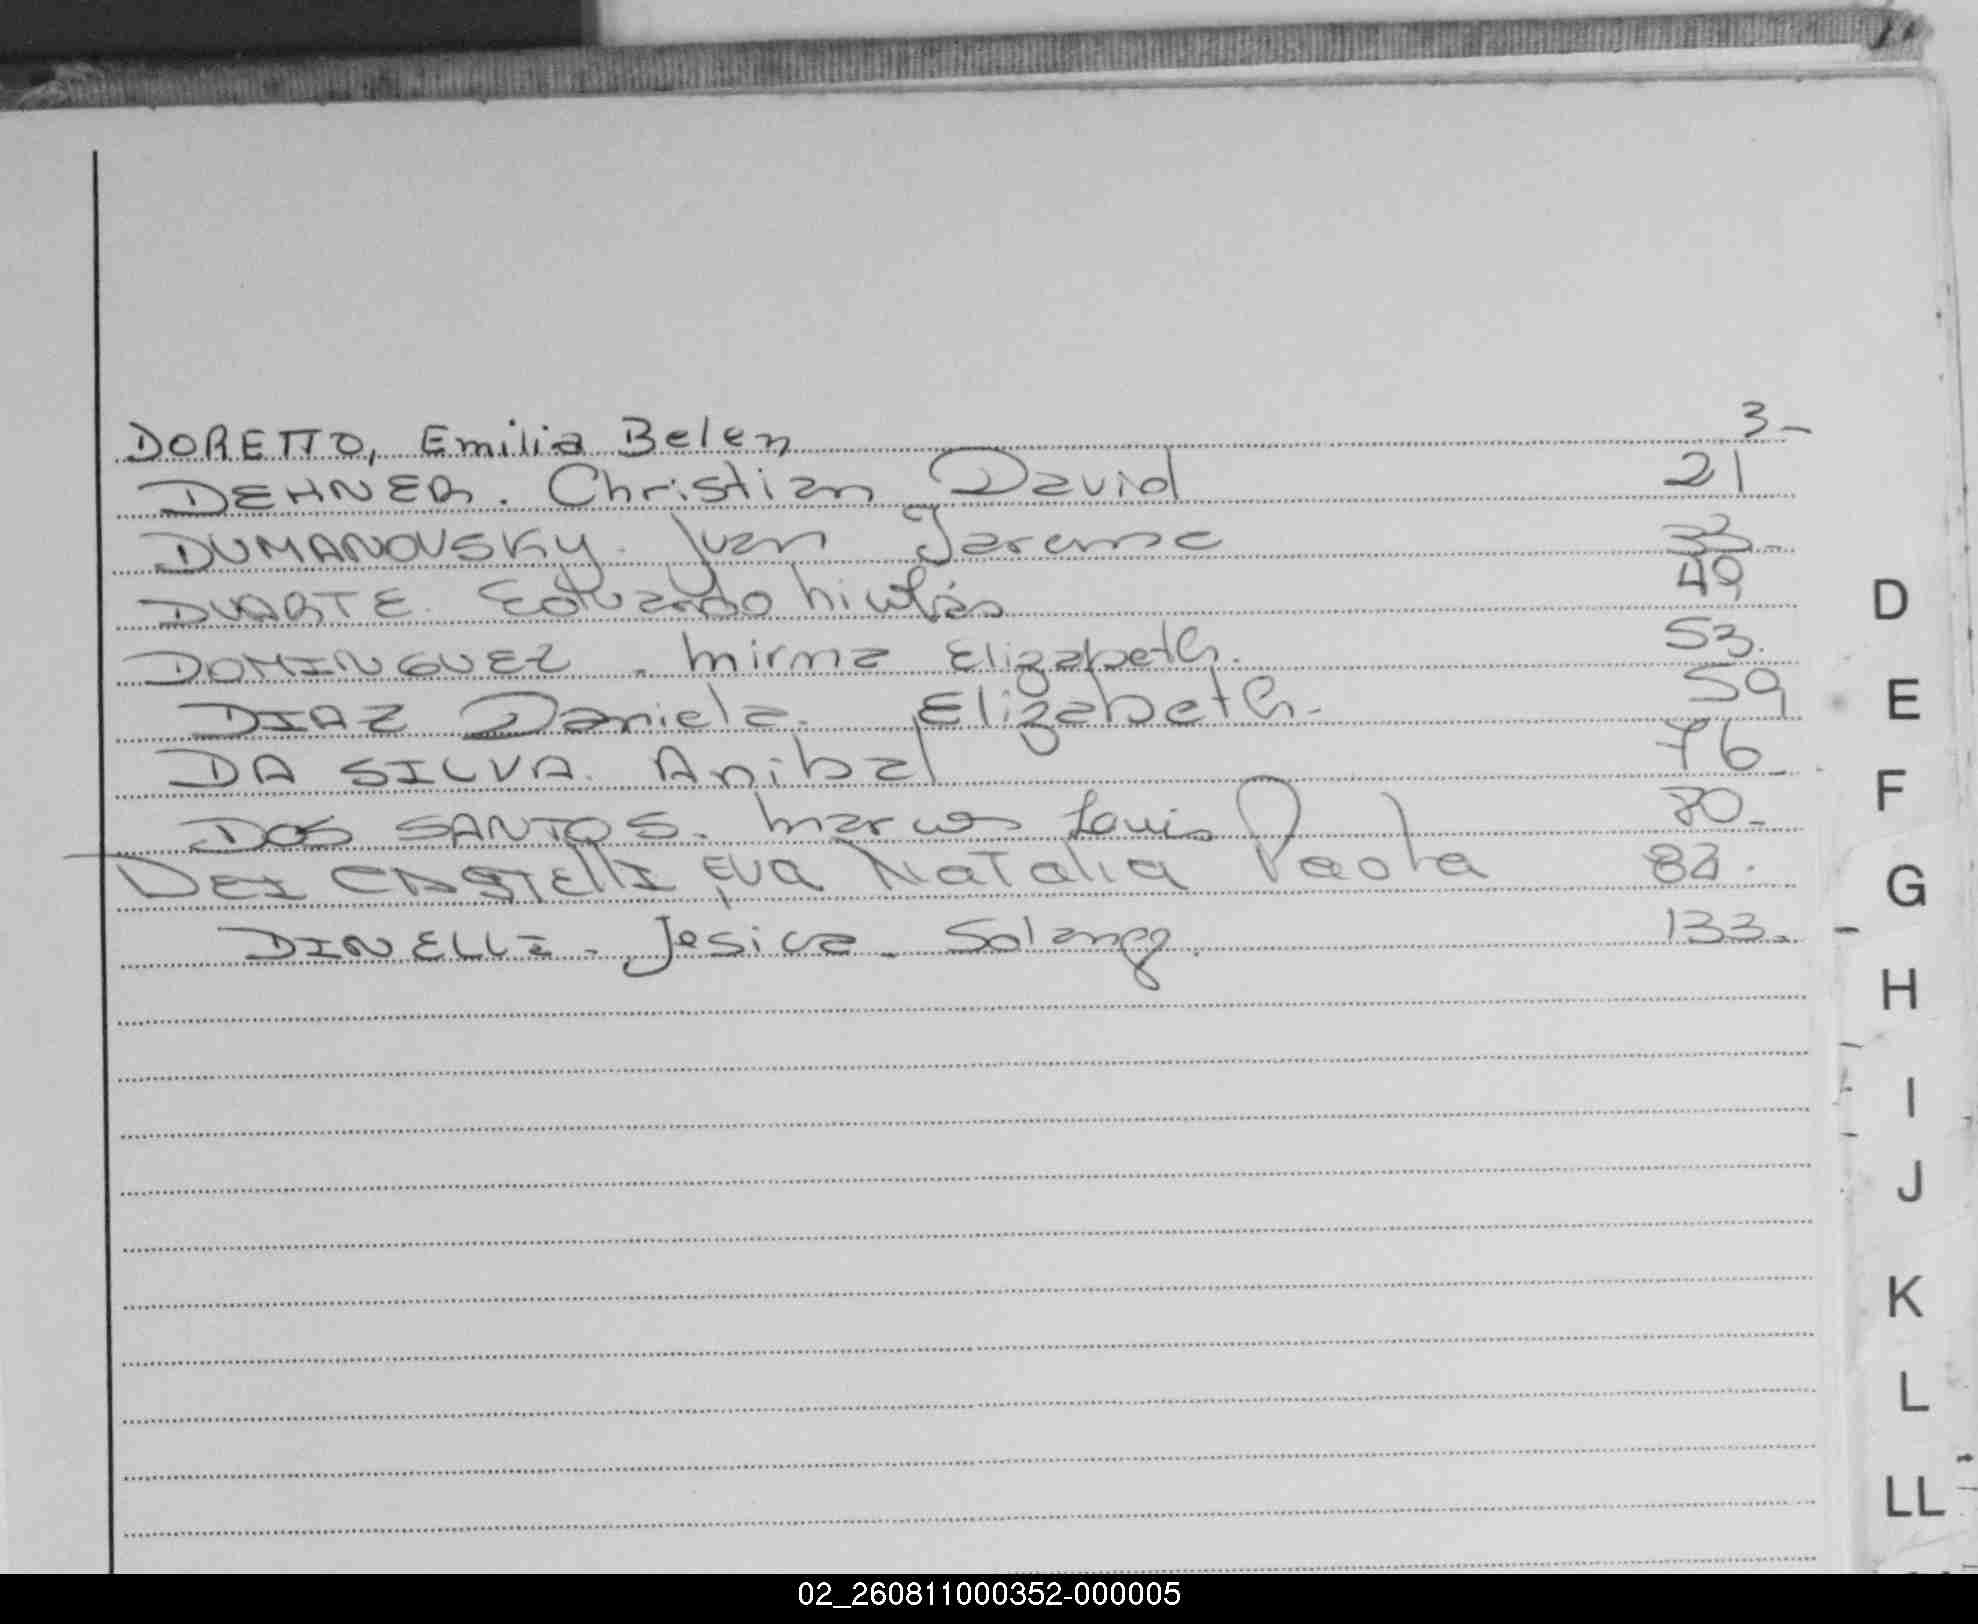 DORETTO, Emilia Belen 3-
DEHNER. Christian David 21
DUMANOVSKY. Juan Jareme 33-
DUARTE. Eduardo Nicolás 49
DOMINGUEZ. Mirna Elizabeth. 53.
DIAZ Daniela. Elizabeth. 59
DA SILVA. Anibal 76
DOS SANTOS. Marcos Louis 80-
DEI CASTELLI EVA NATALIA Paola 82.
DINELLI. Jesica Solange. 133.
D
E
F
G
H
I
J
K
L
LL
02_260811000352-000005